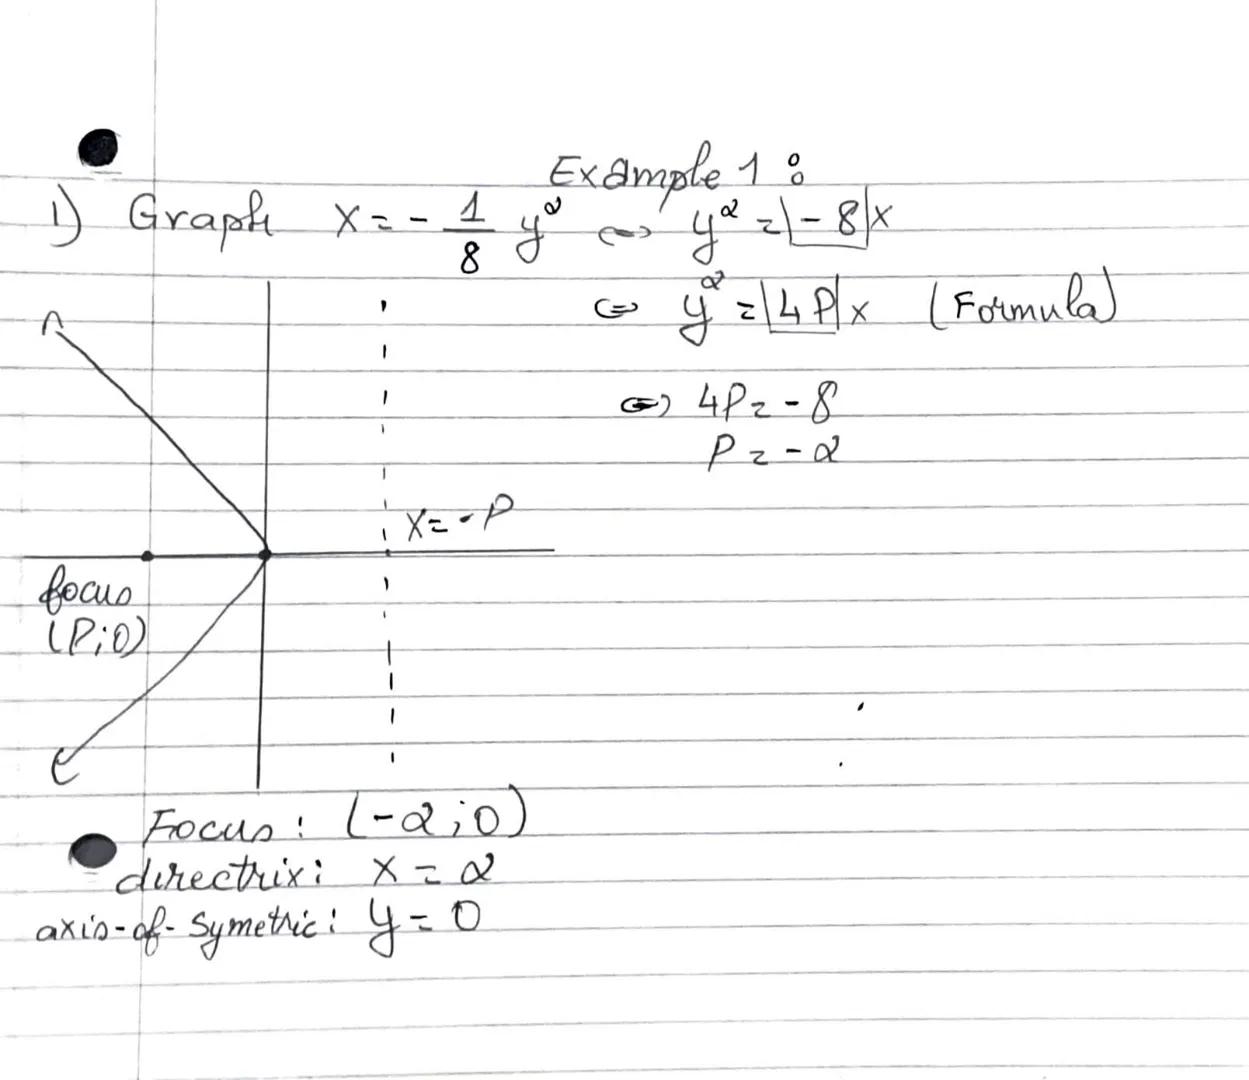 Example 1 :
1) Graph x = - 1/8 y² ⇔ y² = |-8|x
⇔ y² = |4P|x (Formula)
⇔ 4P = -8
P = -2
x = -P
focus
(P;0)
Focus: (-2;0)
directrix: x = 2
axis-of-symetric: y = 0